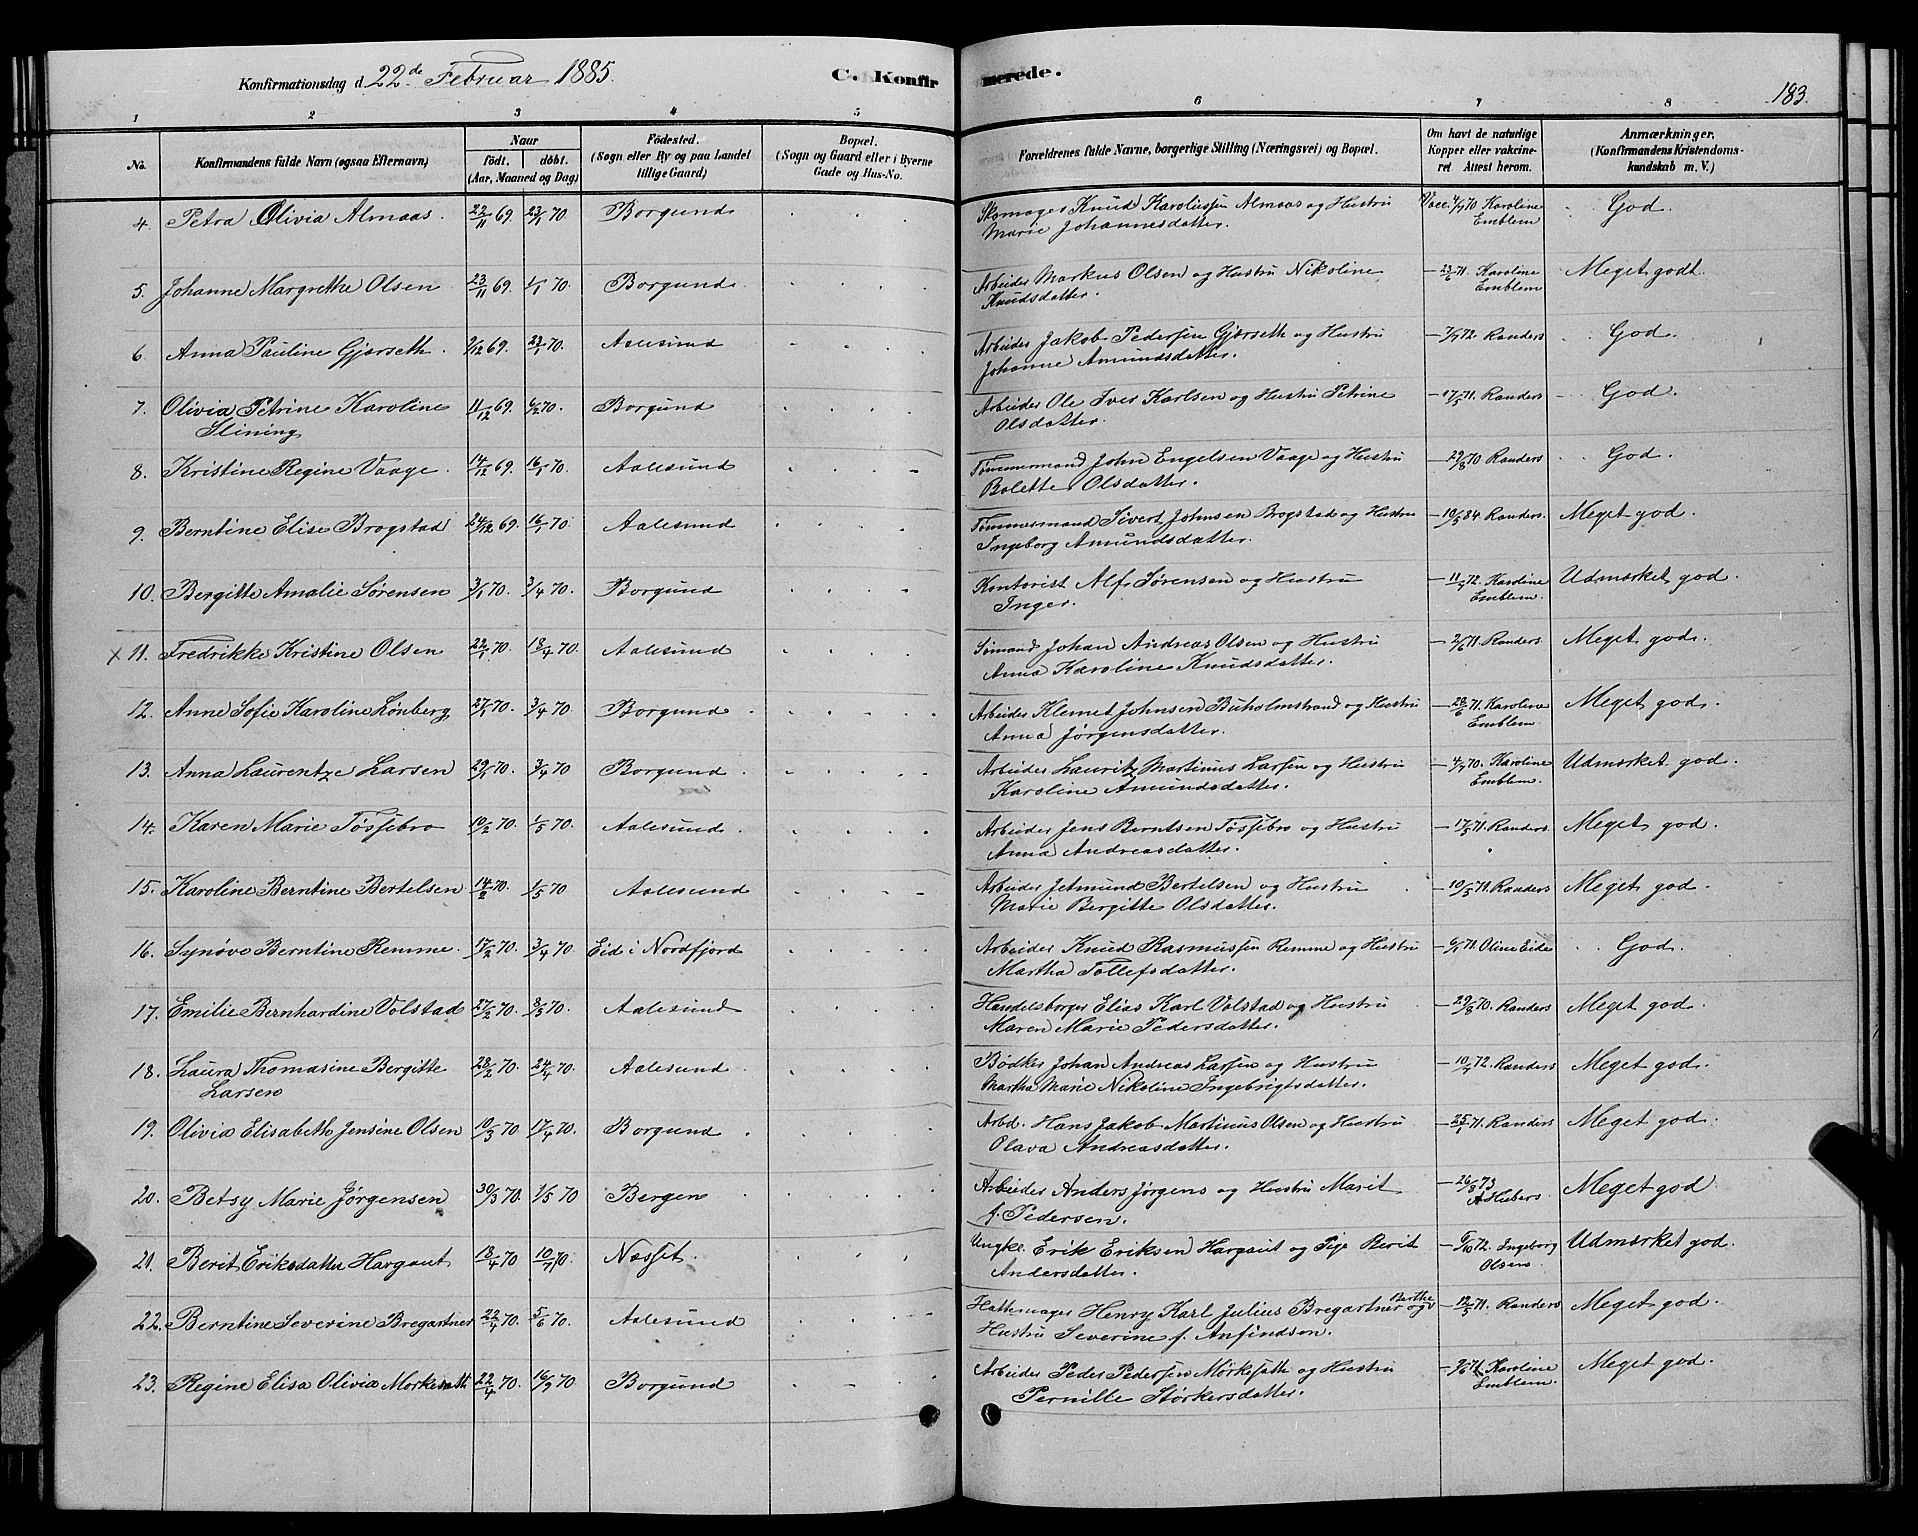 Konfirmationsdag d. 22de Februar 1885. C. Konfirmerede. 183.
1 2 3 4 5 6 7 8
No. Konfirmandens fulde Navn (ogsaa Efternavn) Naar født. døbt. (Aar, Maaned og Dag) Fødested. (Sogn eller By og paa Landet tillige Gaard) Bopæl. (Sogn og Gaard eller i Byerne Gade og Hus-No. Forældrenes fulde Navne, borgerlige Stilling (Næringsvei) og Bopæl. Om havt de naturlige Kopper eller vakcineret Attest herom. Anmærkninger. (Konfirmandens Kristendomskundskab m. V.)
4. Petra Olivia Almaas. 22/11 69. 23/1 70. Borgund Skomager Knud Karolussen Almaas og Hustru Vacc. 4/7 70 Karoline God.
Marie Johannesdatter. Emblem
5. Johanne Margrethe Olsen 23/11 69. 1/1 70. Borgund. Arbeider Markus Olsen og Hustru Nikoline — 23/6 71. Karoline Meget godt.
Knudsdatter. Emblem
6. Anna Pauline Gjørseth. 9/12 69. 23/1 70. Aalesund Arbeider Jakob Pedersen Gjørseth og Hustru — 7/7 72. Randers God.
Johanne Amundsdatter.
7. Olivia Petrine Karoline 11/12 69. 6/2 70. Borgund Arbeider Ole Iver Karlsen og Hustru Petrine — 17/5 71. Randers God.
Slining Olsdatter.
8. Kristine Regine Vaage. 14/12 69. 16/1 70. Aalesund Tømmermand John Engelsen Vaage og Hustru — 29/8 70 Randers God.
Bolette Olsdatter.
9. Berntine Elise Brogstad 24/12 69. 16/1 70. Aalesund Tømmermand Sivert Johnsen Brogstad og Hustru — 10/5 84 Randers. Meget god.
Ingeborg Amundsdatter.
10. Bergitte Amalie Sørensen 3/1 70. 3/4 70. Borgund Kontorist Alf Sørensen og Hustru — 11/7 72. Karoline Udmærket god.
Inger. Emblem.
x 11. Fredrikke Kristine Olsen 22/1 70. 18/4 70. Aalesund Sømand Johan Andreas Olsen og Hustru — 2/6 71. Randers Meget god.
Anna Karoline Knudsdatter.
12. Anne Sofie Karoline Lønberg 27/1 70. 3/4 70 Borgund Arbeider Klemet Johnsen Buholmstrand og Hustru — 23/6 71. Karoline Meget god.
Anna Jørgensdatter. Emblem
13. Anna Laurentze Larsen 29/1 70. 3/4 70 Borgund. Arbeider Lauritz Martinus Larsen og Hustru — 4/7 70. Karoline Udmærket god.
Karoline Amundsdatter. Emblem.
14. Karen Marie Tøssebro 10/2 70. 1/5 70. Aalesund. Arbeider Jens Berntsen Tøssebro og Hustru — 17/5 71. Randers. Meget god.
Anna Andreasdatter.
15. Karoline Berntine Bertelsen 14/2 70. 1/5 70 Aalesund Arbeider Jetmund Bertelsen og Hustru — 10/5 71. Randers Meget god.
Marie Bergitte Olsdatter.
16. Synøve Berntine Remme. 17/2 70. 3/4 70 Eid i Nordfjord Arbeider Knud Rasmussen Remme og Hustru — 6/1 71. Oline Eide God.
Martha Tollefsdatter.
17. Emilie Bernhardine Volstad 27/2 70. 8/5 70. Aalesund Handelsborger Elias Karl Volstad og Hustru — 29/8 70. Randers Meget god.
Maren Marie Pedersdatter.
18. Laura Thomasine Bergitte 28/2 70. 24/4 70 Aalesund. Bødker Johan Andreas Larsen og Hustru — 10/7 72. Randers Meget god.
Larsen Martha Marie Nikoline Ingebrigtsdatter.
19. Olivia Elisabeth Jensine Olsen 10/3 70. 17/4 70. Borgund. Arbd. Hans Jakob Martinus Olsen og Hustru — 25/1 71. Randers Meget god.
Olava Andreasdatter.
20. Betsy Marie Jørgensen 30/3 70. 1/5 70 Bergen Arbeider Anders Jørgens og Hustru Marit — 26/8 73 Meget god
f. Pedersen.
21. Berit Eriksdatter Hargaut 18/4 70 10/7 70. Næsset. Ungkl. Erik Eriksen Hargaut og Pige Berit — 6/10 72. Ingeborg Udmærket god.
Andersdatter. Olsen.
22. Berntine Severine Bregartner 22/4 70. 5/6 70. Aalesund Hattemager Henry Karl Julius Bregartner og Berthe — 12/5 71. Randers Meget god.
Hustru Severine f. Anfindsen.
23. Regine Elisa Olivia Morkesæth 22/4 70. 16/9 70 Borgund Arbeider Peder Pedersen Mørkesæth og Hustru — 9/6 71. Karoline Meget god.
Pernille Størkersdatter. Emblem.